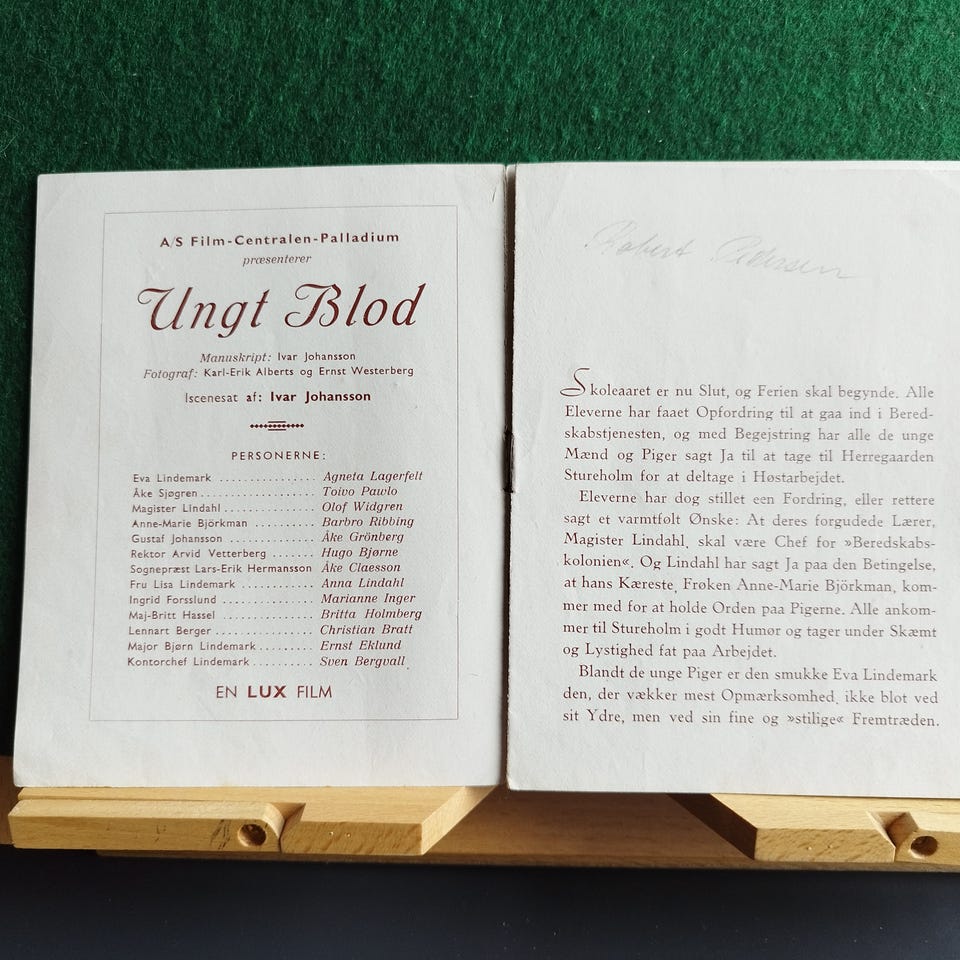 A/S Film-Centralen-Palladium
præsenterer
Ungt Blod
Manuskript: Ivar Johansson
Fotograf: Karl-Erik Alberts og Ernst Westerberg
Iscenesat af: Ivar Johansson
PERSONERNE:
Eva Lindemark ............... Agneta Lagerfelt
Åke Sjøgren .................. Toivo Pawlo
Magister Lindahl ............. Olof Widgren
Anne-Marie Björkman ......... Barbro Ribbing
Gustaf Johansson ............. Åke Grönberg
Rektor Arvid Vetterberg ....... Hugo Bjørne
Sognepræst Lars-Erik Hermansson Åke Claesson
Fru Lisa Lindemark ........... Anna Lindahl
Ingrid Forsslund .............. Marianne Inger
Maj-Britt Hassel .............. Britta Holmberg
Lennart Berger ............... Christian Bratt
Major Bjørn Lindemark ......... Ernst Eklund
Kontorchef Lindemark .......... Sven Bergvall
EN LUX FILM
Robert Pedersen
Skoleaaret er nu Slut, og Ferien skal begynde. Alle
Eleverne har faaet Opfordring til at gaa ind i Bered-
skabstjenesten, og med Begejstring har alle de unge
Mænd og Piger sagt Ja til at tage til Herregaarden
Stureholm for at deltage i Høstarbejdet.
Eleverne har dog stillet een Fordring, eller rettere
sagt et varmtfølt Ønske: At deres forgudede Lærer,
Magister Lindahl, skal være Chef for »Beredskabs-
kolonien«. Og Lindahl har sagt Ja paa den Betingelse,
at hans Kæreste, Frøken Anne-Marie Björkman, kom-
mer med for at holde Orden paa Pigerne. Alle ankom-
mer til Stureholm i godt Humør og tager under Skæmt
og Lystighed fat paa Arbejdet.
Blandt de unge Piger er den smukke Eva Lindemark
den, der vækker mest Opmærksomhed, ikke blot ved
sit Ydre, men ved sin fine og »stilige« Fremtræden.